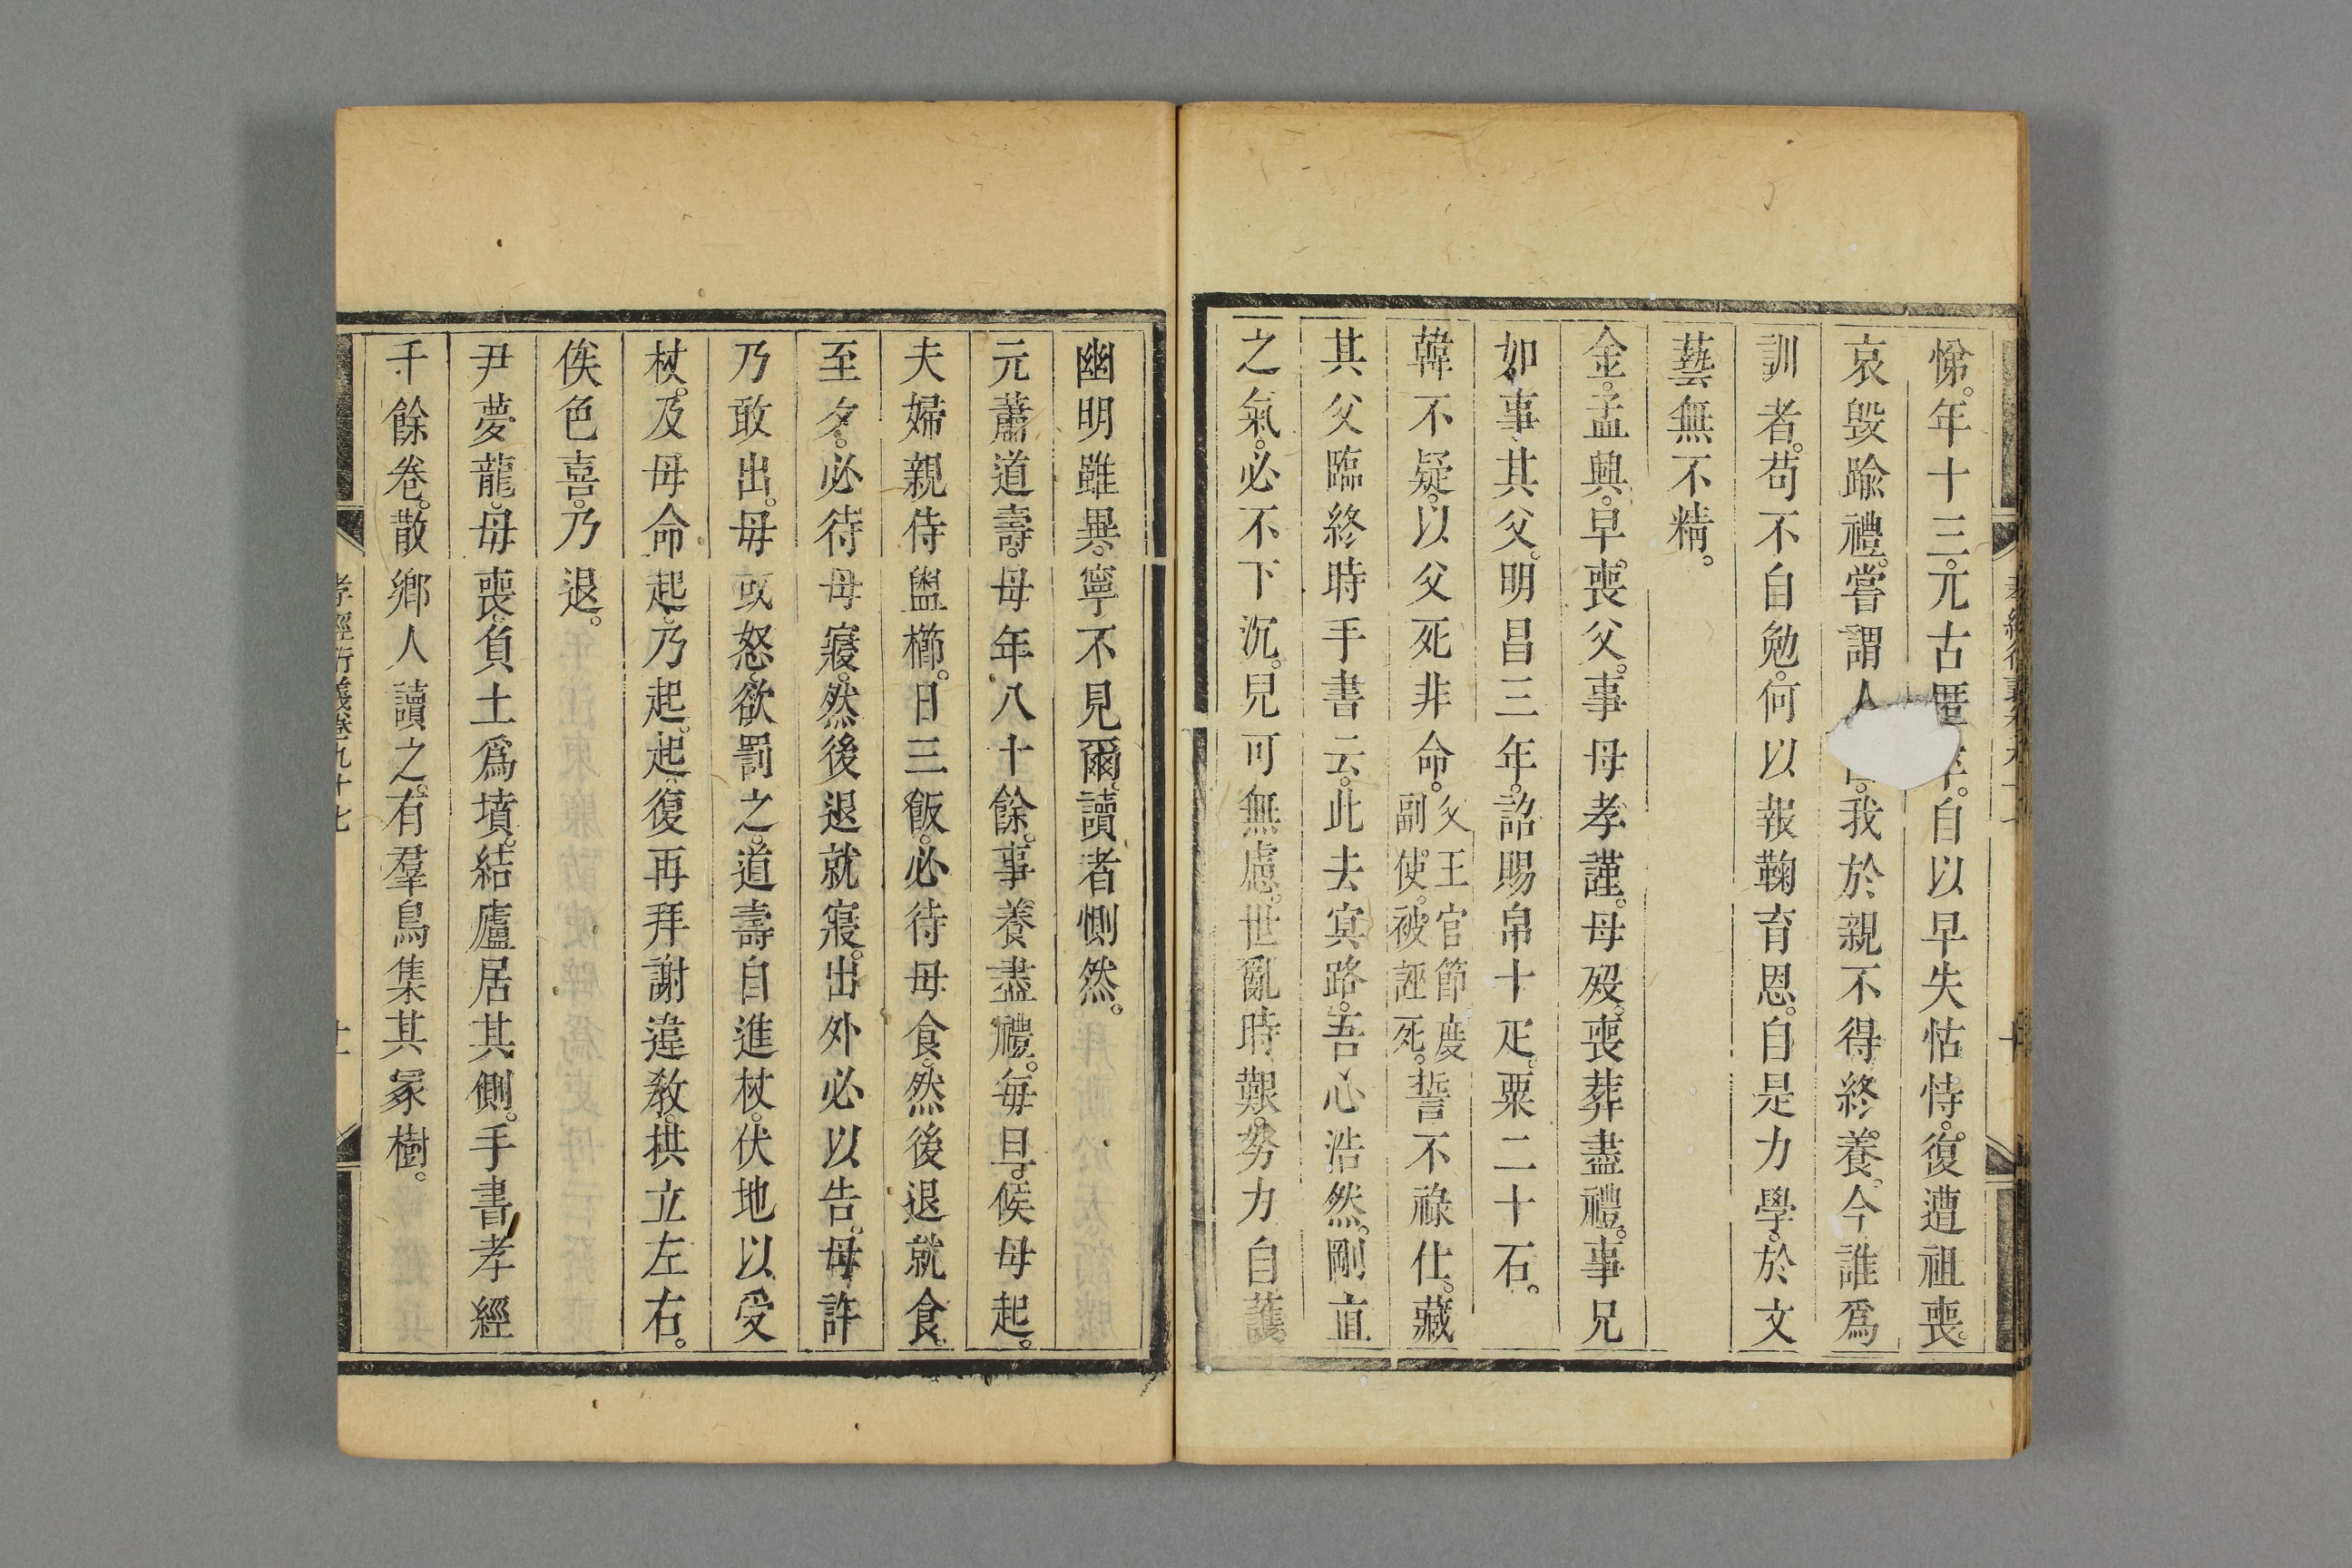 悌。年十三。亢古暦卒。自以早失怙恃。復遭祖喪。
哀毀踰禮。嘗謂人。我於親不得終養。今誰爲
訓者。苟不自勉。何以報鞠育恩。自是力學。於文
藝無不精。
金。孟興。早喪父。事母孝謹。母歿。喪葬盡禮。事兄
如事其父。明昌三年。詔賜帛十疋。粟二十石。
韓不疑。以父死非命。父王官節度副使。被誣死。誓不祿仕。藏
其父臨終時手書云。此去冥路。吾心浩然。剛直
之氣。必不下沉。兒可無慮。世亂時艱。努力自護
幽明雖異。寧不見爾。讀者惻然。
元蕭道壽。母年八十餘。事養盡禮。每旦。候母起。
夫婦親侍盥櫛。日三飯。必待母食。然後退就食。
至夕。必待母寢。然後退就寢。出外必以告。母許
乃敢出。母或怒。欲罰之。道壽自進杖。伏地以受
杖。及母命起。乃起。起復再拜謝違教。拱立左右。
俟色喜。乃退。
尹夢龍。母喪。負土爲墳。結廬居其側。手書孝經
千餘卷。散鄉人讀之。有羣鳥集其冢樹。
孝經衍義卷九十七
十一